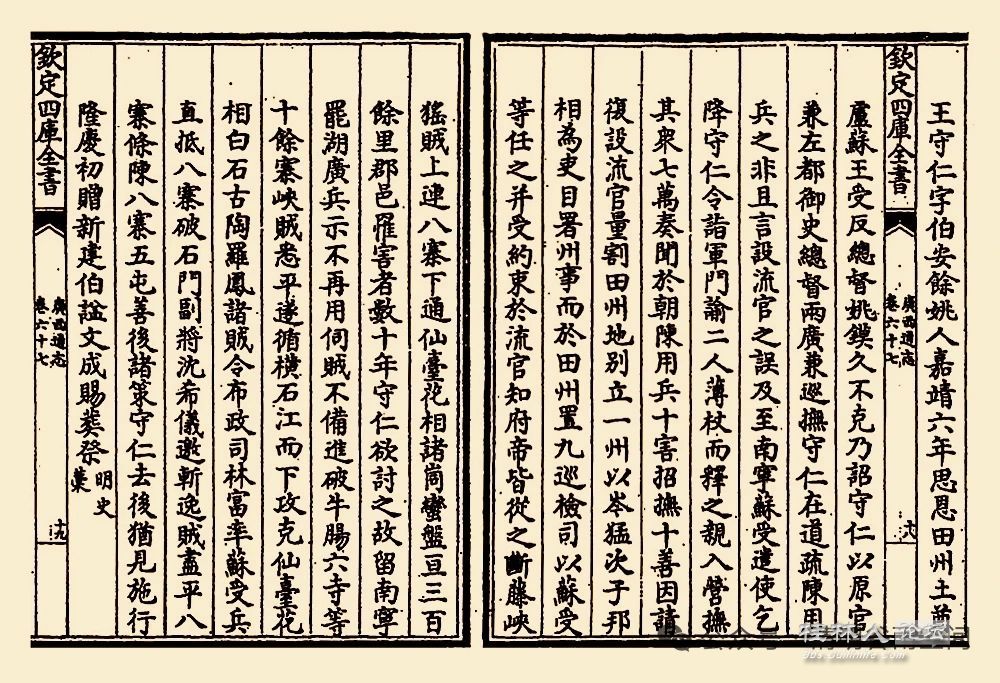 王守仁字伯安餘姚人嘉靖六年思恩田州土酋
盧蘇王受反總督姚鏌久不克乃詔守仁以原官
兼左都御史總督兩廣兼巡撫守仁在道疏陳用
兵之非且言設流官之誤及至南寧蘇受遣使乞
降守仁令詣軍門諭二人薄杖而釋之親入營撫
其衆七萬奏聞於朝陳用兵十害招撫十善因請
復設流官量割田州地别立一州以岑猛次子邦
相為吏目署州事而於田州置九巡檢司以蘇受
等任之并受約束於流官知府帝皆從之斷藤峽
欽定四庫全書
廣西通志
卷六十七
十八
猺賊上連八寨下通仙臺花相諸峝蠻盤亘三百
餘里郡邑罹害者數十年守仁欲討之故留南寧
罷湖廣兵示不再用伺賊不備進破牛腸六寺等
十餘寨峽賊悉平遂循橫石江而下攻克仙臺花
相白石古陶羅鳳諸賊令布政司林富率蘇受兵
直抵八寨破石門副將沈希儀邀斬逸賊盡平八
寨條陳八寨五屯善後諸策守仁去後猶見施行
隆慶初贈新建伯諡文成賜葬祭
明史
藁
欽定四庫全書
廣西通志
卷六十七
十九
桂林人论坛